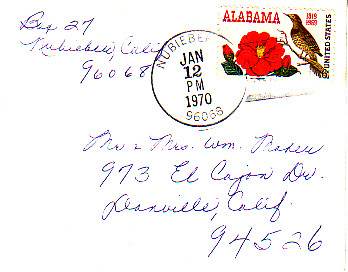 Box 27
Nubieber, Calif
96068
NUBIEBER
JAN
12
PM
1970
96068
ALABAMA
1819
1969
UNITED STATES
Mr & Mrs. Wm.
973 El Cajon Dr.
Danville, Calif.
94526